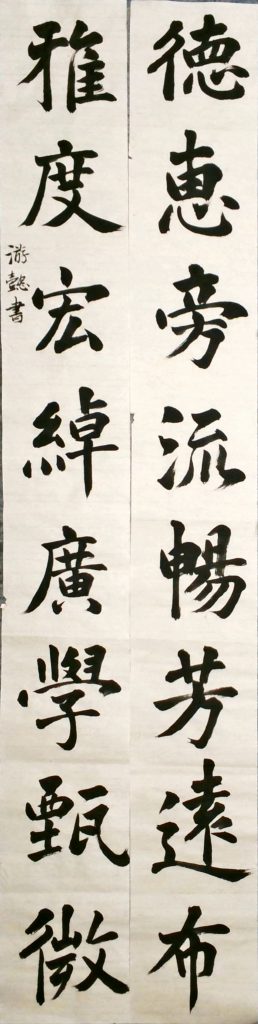 德恵旁流暢芳遠布
雅度宏綽廣學甄微
游懿書